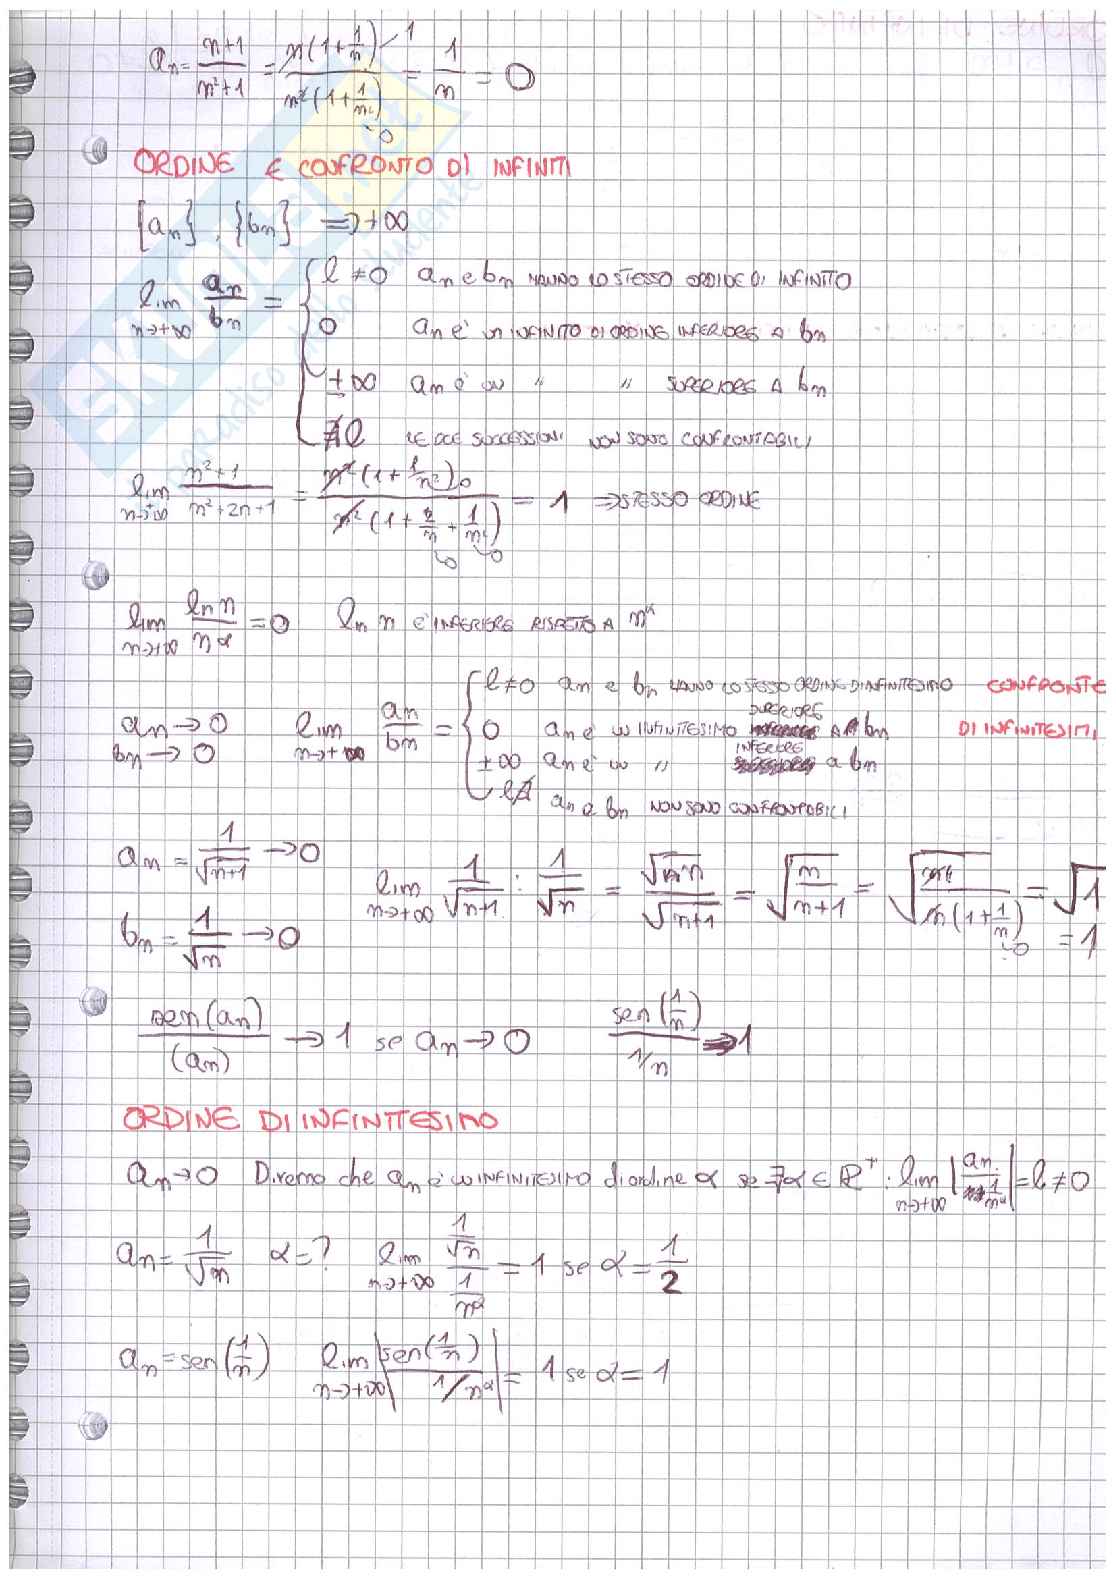 an = n+1/n²+1 = n(1+1/n)→1/n²(1+1/n²)→0 = 1/n = 0
ORDINE E CONFRONTO DI INFINITI
{an}, {bn} ⇒ +∞
lim n→+∞ an/bn = { l≠0 an e bn HANNO LO STESSO ORDINE DI INFINITO
0 an è UN INFINITO DI ORDINE INFERIORE A bn
±∞ an è UN " " SUPERIORE A bn
∄ l LE DUE SUCCESSIONI NON SONO CONFRONTABILI
lim n→+∞ n²+1/n²+2n+1 = n²(1+1/n²)→0/n²(1+2/n+1/n²)→0→0 = 1 ⇒ STESSO ORDINE
lim n→+∞ ln n/n^α = 0 ln n è INFERIORE RISPETTO A n^α
an→0 bn→0 lim n→+∞ an/bn = { l≠0 an e bn HANNO LO STESSO ORDINE DI INFINITESIMO CONFRONTE
0 an è UN INFINITESIMO SUPERIORE A bn DI INFINITESIMI
±∞ an è UN " INFERIORE a bn
l∄ an e bn NON SONO CONFRONTABILI
an = 1/√n+1 → 0
bn = 1/√n → 0
lim n→+∞ 1/√n+1 : 1/√n = √n/√n+1 = √n/n+1 = √n/n(1+1/n)→0 = √1 = 1
sen(an)/(an) → 1 se an → 0 sen(1/n)/1/n → 1
ORDINE DI INFINITESIMO
an→0 Diremo che an è UN INFINITESIMO di ordine α se ∃α∈ℝ⁺ : lim n→+∞ |an/1/n^α| = l≠0
an = 1/√n α=? lim n→+∞ 1/√n/1/n^α = 1 se α = 1/2
an = sen(1/n) lim n→+∞ |sen(1/n)/1/n^α| = 1 se α = 1